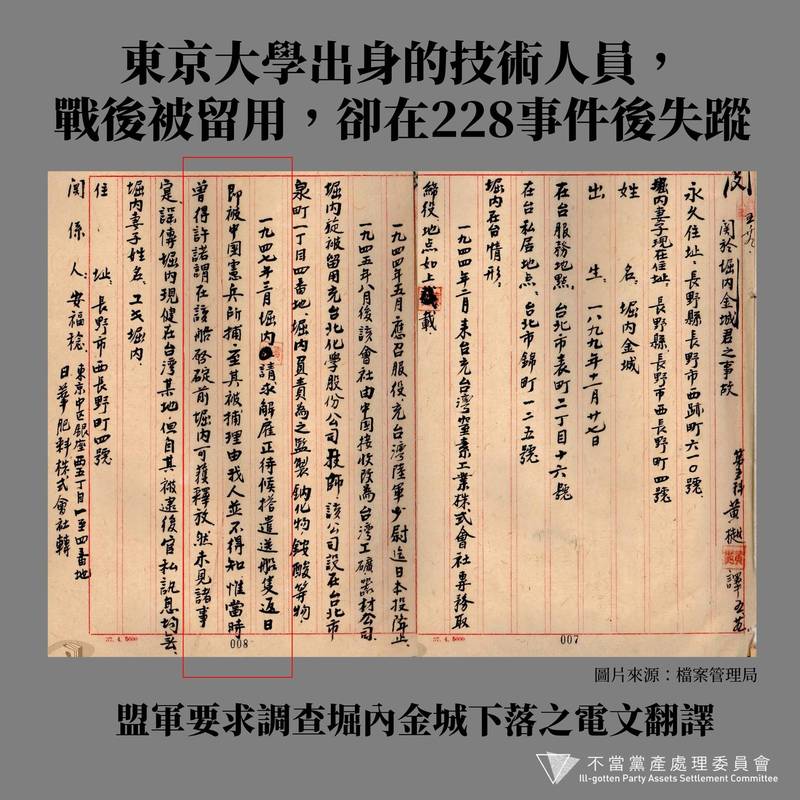 東京大學出身的技術人員，
戰後被留用，卻在228事件後失蹤
関於堀內金城君之事故
第五科 黃樾 譯
永久住址、長野縣長野市西跡町六一〇號、
堀內妻子現在住址、長野縣長野市西長野町四號
姓名、堀內金城
出生、一八九九年十一月廿七日
在台服務地點、台北市表町二丁目十六號
在台私居地点、台北市錦町一二五號
堀內在台情形、
一九四四年二月來台充台灣窒素工業株式會社專務取
締役地点如上載、
一九四四年五月應召服役充台灣陸軍少尉迄日本投降止、
一九四五年八月後該會社由中國接收改為台灣工礦器材公司、
堀內旋被留用充台北化學股份公司技師該公司設在台北市
泉町一丁目四番地、堀內負責為之監製鈉化物銨酸等物
一九四七年三月堀內請求解雇正待候搭遣送船隻返日
即被中國憲兵所捕、至其被捕理由我人並不得知惟當時
曾得許諾謂在該船啓碇前堀內可獲釋放然未見諸事
寔謠傳堀內現健在台灣某地但自其被逮後官私訊息均無、
堀內妻子姓名、工、堀內、
住址、長野市西長野町四號
関係人、安福稔、東京中央區銀座西五丁目一至四番地
日華肥料株式會社轉
37. 4. 5000
008
37. 4. 5000
007
圖片來源：檔案管理局
盟軍要求調查堀內金城下落之電文翻譯
不當黨產處理委員會
Ill-gotten Party Assets Settlement Committee